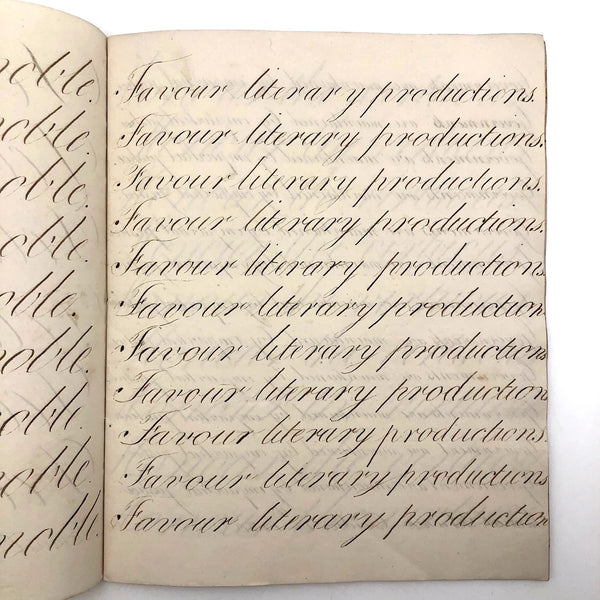 noble.
noble.
noble.
noble.
noble.
noble.
noble.
noble.
noble.
noble.
noble.
Favour literary productions.
Favour literary productions.
Favour literary productions.
Favour literary productions.
Favour literary productions
Favour literary production
Favour literary productions
Favour literary productions
Favour literary productions.
Favour literary productions
Favour literary production